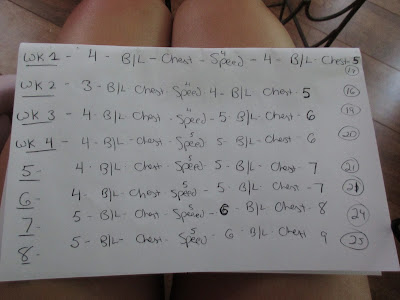 WK 1 - 4 - B/L - Chest - Speed 4 - 4 - B/L - Chest 5 17
WK 2 - 3 - B/L - Chest - Speed 4 - 4 - B/L - Chest - 5 16
WK 3 - 4 - B/L - Chest - Speed 4 - 5 - B/L - Chest - 6 19
WK 4 - 4 - B/L - Chest - Speed 5 5 - B/L - Chest - 6 20
5 - 4 - B/L - Chest - Speed 5 - 5 - B/L - Chest - 7 21
6 - 4 - B/L - Chest Speed 5 - 5 - B/L - Chest - 7 21
7 - 5 - B/L - Chest - Speed 5 - 6 - B/L - Chest - 8 24
8 - 5 - B/L - Chest - Speed 5 - 6 - B/L - Chest 9 25